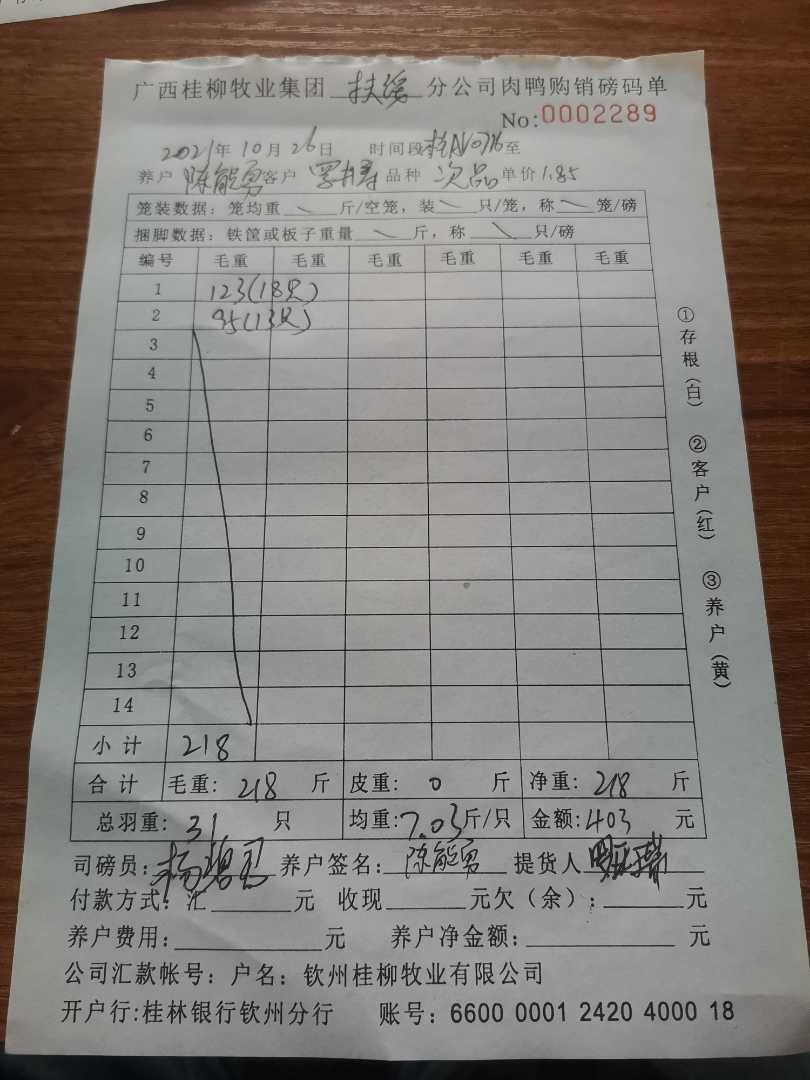 广西桂柳牧业集团 扶绥 分公司肉鸭购销磅码单
No:0002289
2021年10月26日 时间段 至
养户 陈能勇 客户 品种 次品 单价 1.85
笼装数据：笼均重 \ 斤/空笼，装 \ 只/笼，称 \ 笼/磅
捆脚数据：铁筐或板子重量 \ 斤，称 \ 只/磅
编号 毛重 毛重 毛重 毛重 毛重 毛重
1 123(18只)
2 95(13只)
3
4
5
6
7
8
9
10
11
12
13
14
小计 218
合计 毛重: 218 斤 皮重: 0 斤 净重: 218 斤
总羽重: 31 只 均重: 7.03 斤/只 金额: 403 元
司磅员: 养户签名: 陈能勇 提货人
付款方式: 汇 元 收现 元欠（余）: 元
养户费用: 元 养户净金额: 元
公司汇款帐号: 户名: 钦州桂柳牧业有限公司
开户行:桂林银行钦州分行 账号: 6600 0001 2420 4000 18
①存根(白) ②客户(红) ③养户(黄)